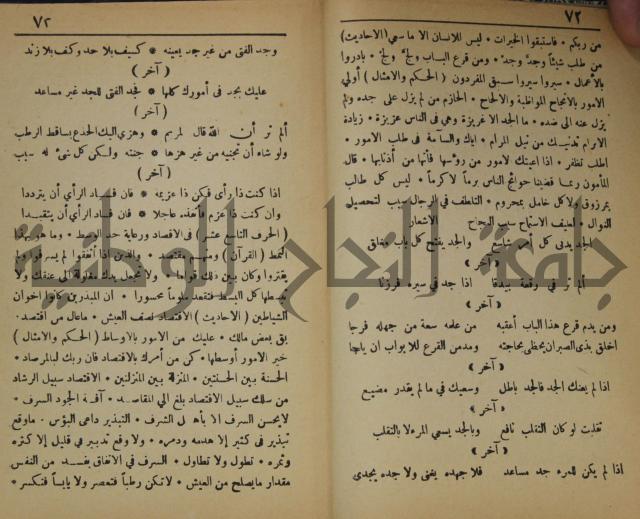 ٧٢
من ربكم • فاستبقوا الخيرات • ليس للانسان الا ما سعى (الاحاديث)
من طلب شيئاً وجدّ وجدَ • ومن قرع الباب ولجّ ولج • بادروا
بالأعمال • سيروا سيروا سبق المفردون (الحكم والامثال) أولي
الامور بالانجاح المواظبة والالحاح • الحازم من لم يزل على جده ولم
يزل عنه الى ضده • ما الجد الا غريزة وهي فى الناس عزيزة • زيادة
الابرام تدنيك من نيل المرام • اياك والسآمة فى طلب الامور •
اطلب تظفر • اذا اعيتك لامور من رؤسها فأتها من أذنابها • قال
المأمون ربما قضينا حوائج الناس برماً لاكرماً • ليس كل طالب
بمرزوق ولا كل غافل بمحروم • التلطف في الرجال سبب لتحصيل
النوال • لطيف الاستماح سبب النجاح الاشعار
الجد يدني كل أمر شاسع والجد يفتح كل باب مغلق
« آخر »
ألم تر في رقعة بيدقا اذا جد في سيره فرزنا
« آخر »
ومن يدم قرع هذا الباب أعقبه من علمه سعة من جهله فرجا
اخلق بذى الصبر ان يحظى بحاجته ومدمن القرع للابواب ان يلجا
« آخر »
اذا لم يعنك الجد فالجد باطل وسعيك في ما لم يقدر مضيع
« آخر »
تقلبت لو كان التقلب نافع وبالجد يسعي المرء لا بالتقلب
« آخر »
اذا لم يكن للمرء جد مساعد فلا جهده يغنى ولا جده يجدى
٧٢
وجد الفتى من غير جد يعينه • كسيف بلا حد وكف بلا زند
( آخر )
عليك بجد فى أمورك كلها • فجد الفتى للجد غير مساعد
( آخر )
ألم تر أن الله قال لمريم • وهزي اليك الجذع يساقط الرطب
ولو شاء أن تجنيه من غير هزها • جنته ولكن كل شيء له سبب
( آخر )
اذا كنت ذا رأى فكن ذا عزيمه • فان فساد الرأي أن يترددا
وان كنت ذا عزم فأنفذه عاجلا • فان فساد الرأي أن يتقيدا
( الحرف التاسع عشر ) فى الاقتصاد ورعاية حد الوسط • وما هو بهذا
النمط ( القرآن ) ومنهم مقتصد • والذين اذا أنفقوا لم يسرفوا ولم
يقتروا وكان بين ذلك قواما • ولا تجعل يدك مغلولة الى عنقك ولا
تبسطها كل البسط فتقعد ملوماً محسورا • ان المبذرين كانوا اخوان
الشياطين ( الاحاديث ) الاقتصاد نصف العيش • ماعال من اقتصد •
بق بعض مالك • عليك من الامور بالاوساط (الحكم والامثال )
خير الامور أوسطها • كن من أمرك بالاقتصاد فان ربك لبالمرصاد •
الحسنة بين الحسنتين • المنزلة بين المنزلتين • الاقتصاد سبيل الرشاد
من سلك سبيل الاقتصاد بلغ الي المقاصد • آفة الجود السرف •
لايحسن السرف الا بأهل الشرف • التبذير داعى البؤس • ماوقع
تبذير فى كثير الا هدمه ودمره • ولا وقع تدبير في قليل الا كثره
وثمره • تطول ولا تطاول • السرف في الانفاق يفسد من النفس
مقدار مايصلح من العيش • لاتكن رطباً فتعصر ولا يابساً فتكسر •
جامعة النجاح الوطنية